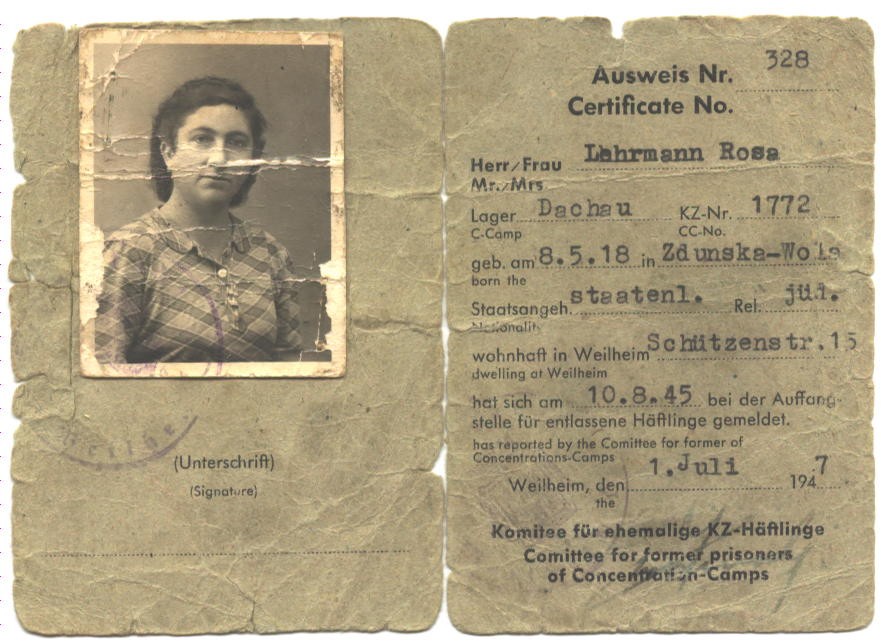 (Unterschrift)
(Signature)
328
Ausweis Nr.
Certificate No.
Herr/Frau Lahrmann Rosa
Mr./Mrs
Lager Dachau KZ-Nr. 1772
C-Camp CC-No.
geb. am 8.5.18 in Zdunska-Wola
born the
Staatsangeh. staatenl. Rel. jüd.
Nationalit
wohnhaft in Weilheim Schützenstr.15
dwelling at Weilheim
hat sich am 10.8.45 bei der Auffang-
stelle für entlassene Häftlinge gemeldet.
has reported by the Comittee for former of
Concentrations-Camps
Weilheim, den 1.Juli 1947
the
Komitee für ehemalige KZ-Häftlinge
Comittee for former prisoners
of Concentration-Camps